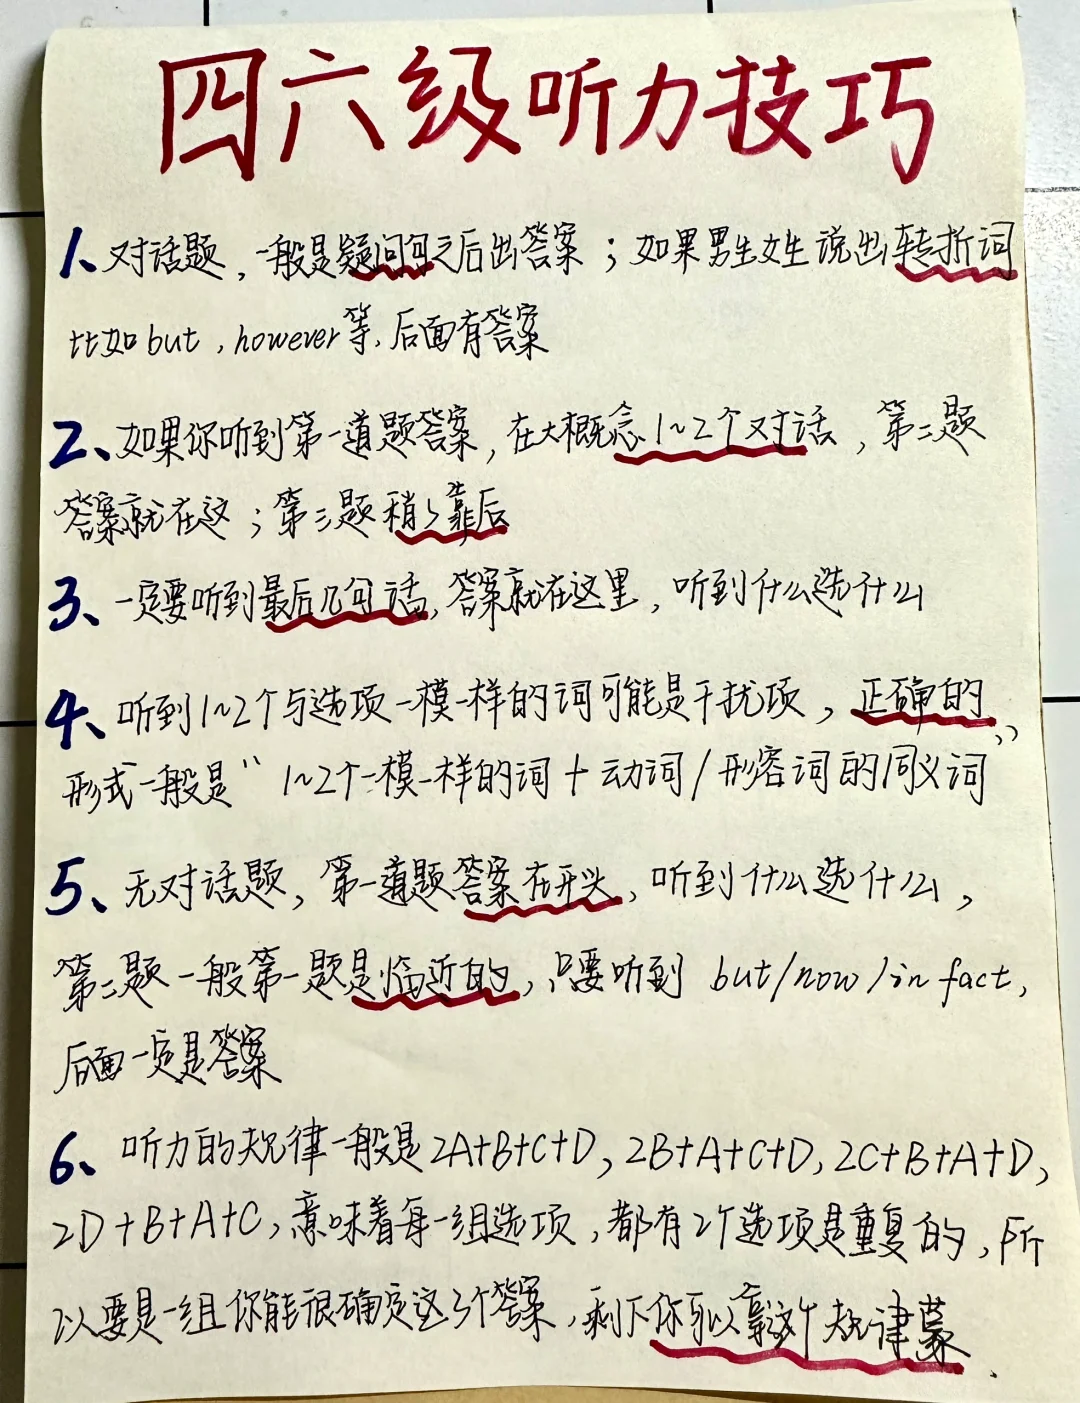 四六级听力技巧
1、对话题，一般是疑问句之后出答案；如果男生女生说出转折词
比如but，however等，后面有答案
2、如果你听到第一道题答案，在大概念1~2个对话，第二题
答案就在这；第三题稍稍靠后
3、一定要听到最后几句话，答案就在这里，听到什么选什么
4、听到1~2个与选项一模一样的词可能是干扰项，正确的
形式一般是“1~2个一模一样的词+动词/形容词的同义词”
5、无对话题，第一道题答案在开头，听到什么选什么，
第二题一般第一题是临近的，只要听到 but/now/in fact，
后面一定是答案
6、听力的规律一般是2A+B+C+D，2B+A+C+D，2C+B+A+D，
2D+B+A+C，意味着每一组选项，都有2个选项是重复的，所
以要是一组你能很确定这3个答案，剩下你可以靠这个规律蒙.